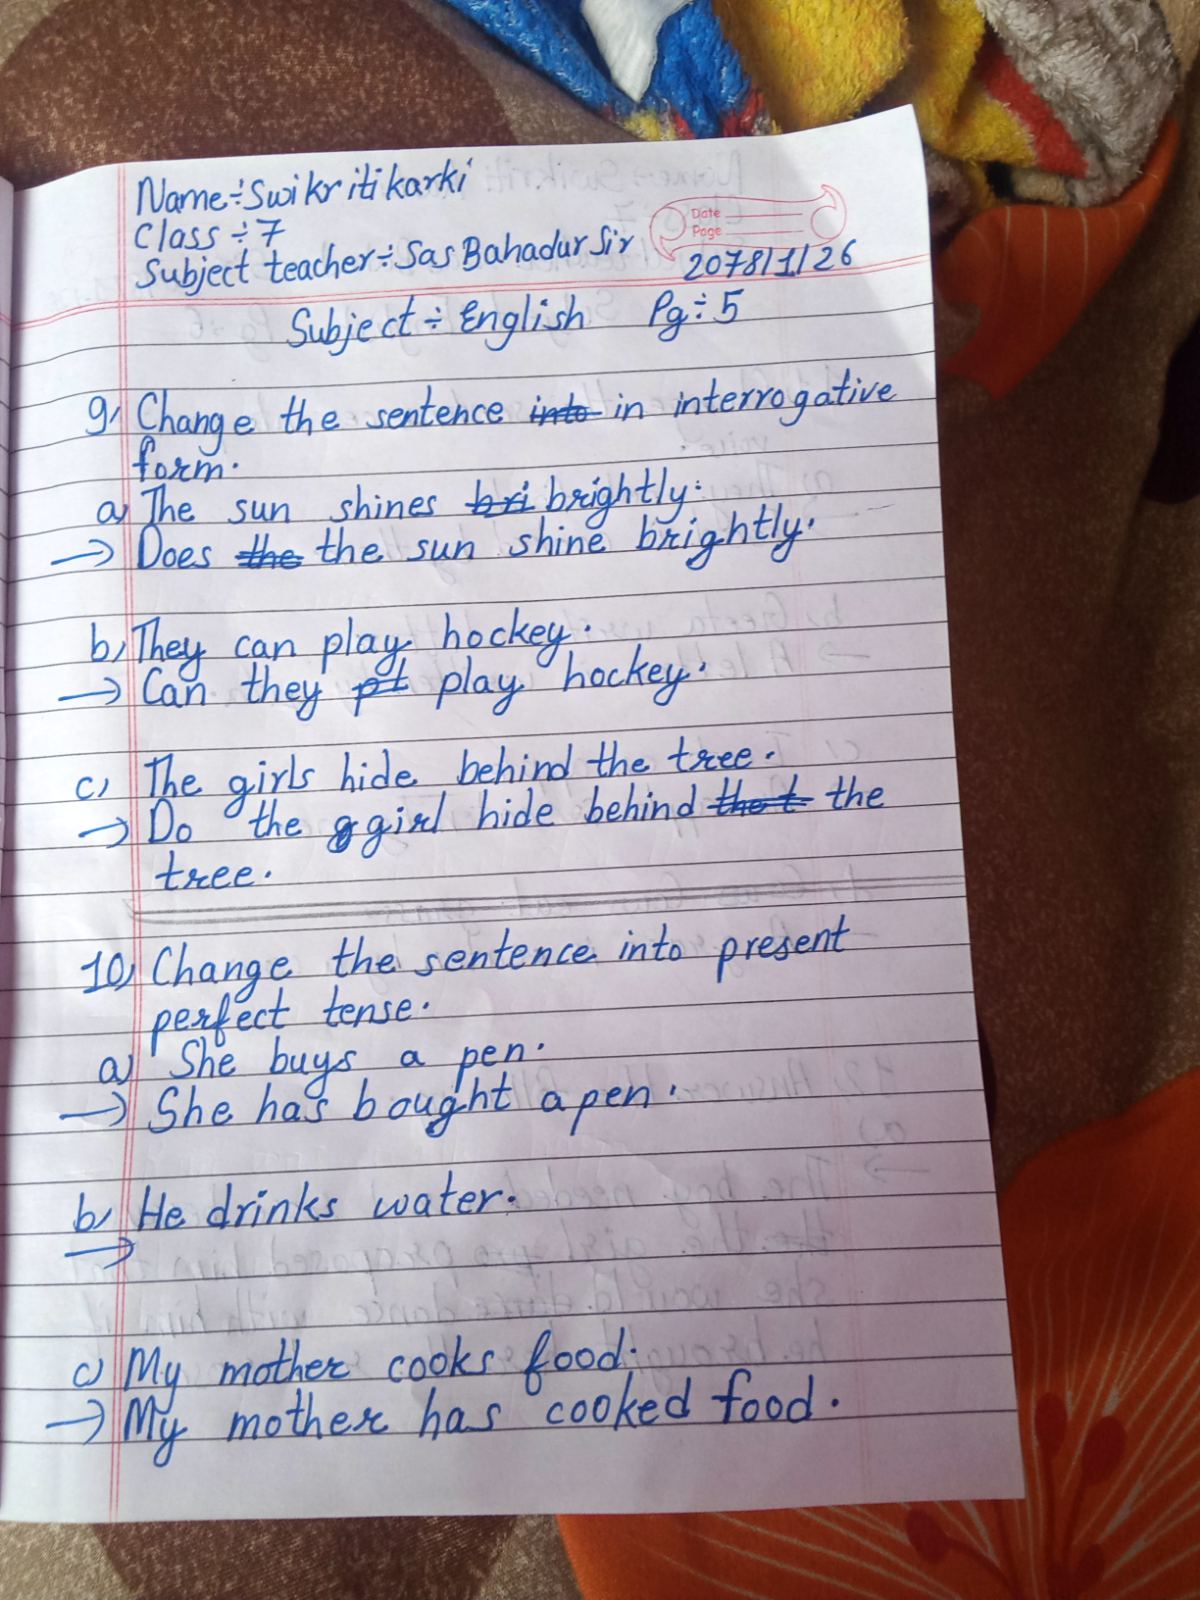 Name÷Swikriti karki
Class÷7
Subject teacher÷Sas Bahadur Sir
Date
Page
2078/1/26
Subject÷English Pg÷5
9) Change the sentence into in interrogative
form.
a) The sun shines bri brightly.
→ Does the the sun shine brightly.
b) They can play hockey.
→ Can they pt play hockey.
c) The girls hide behind the tree.
→ Do the g girl hide behind the t the
tree.
10) Change the sentence into present
perfect tense.
a) She buys a pen.
→ She has bought a pen.
b) He drinks water.
→
c) My mother cooks food.
→ My mother has cooked food.